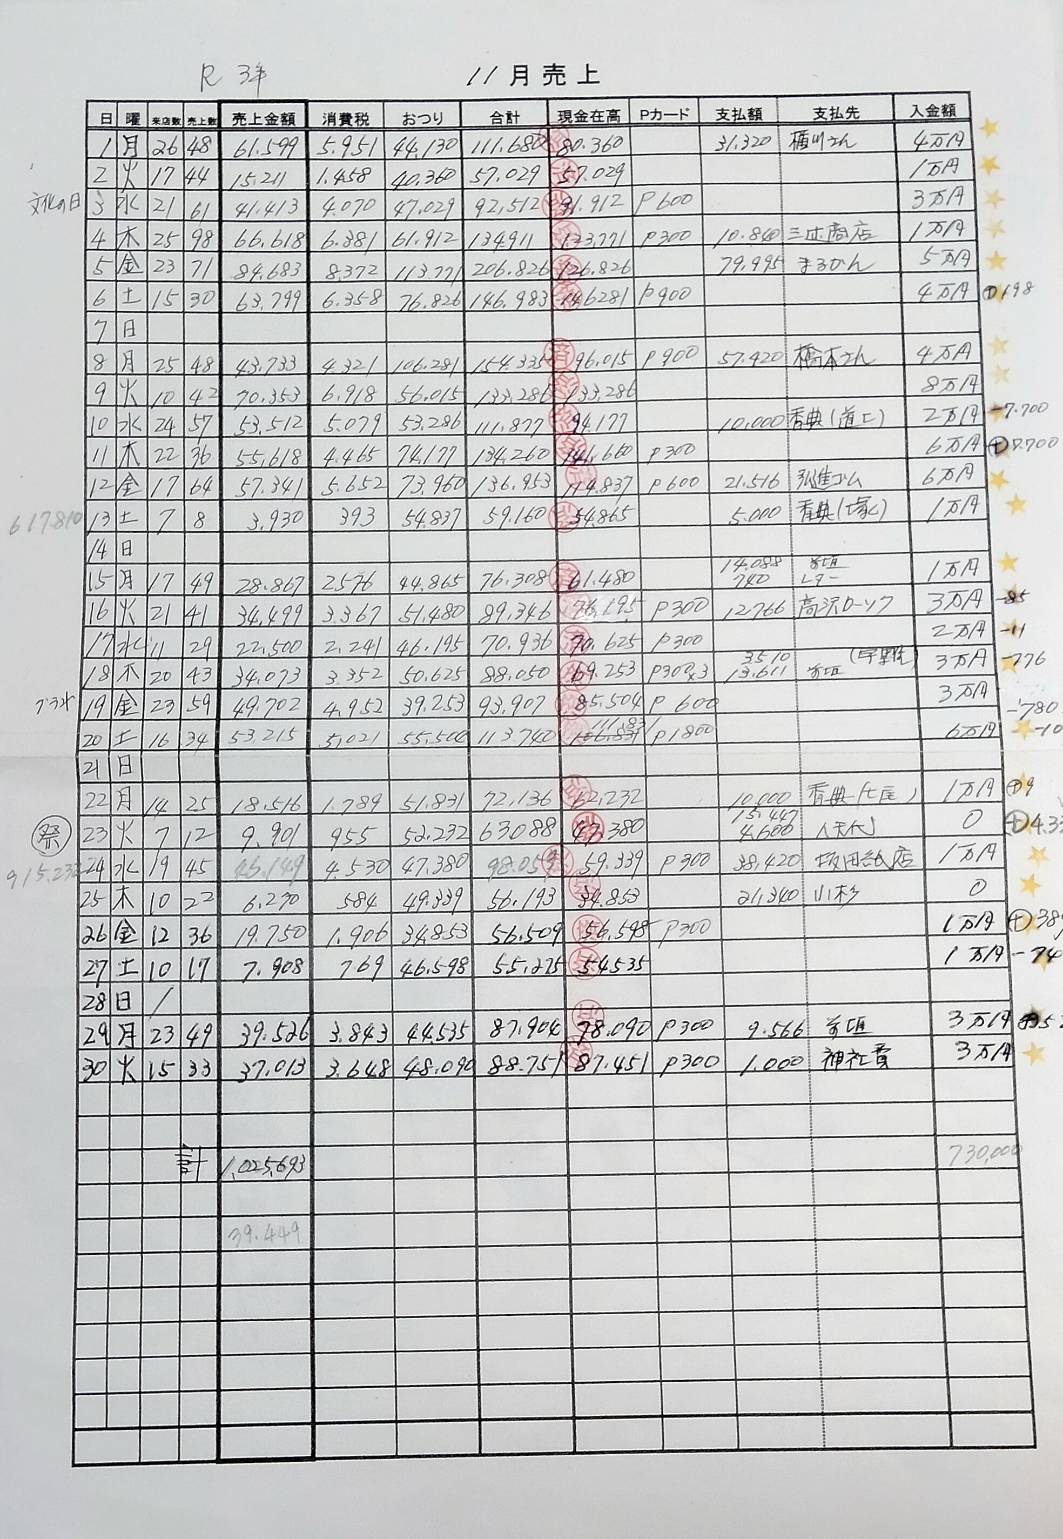 R 3年 11月売上
日 曜 来店数 売上数 売上金額 消費税 おつり 合計 現金在高 Pカード 支払額 支払先 入金額
1 月 26 48 61.599 5.951 44.130 111.680 80.360 31.320 4万円
2 火 17 44 15.211 1.458 40.360 57.029 57.029 1万円
文化の日 3 水 21 61 41.413 4.070 47.029 92,512 91.912 P600 3万円
4 木 25 98 66.618 6.381 61.912 134.911 123,771 P300 10.840 商店 1万円
5 金 23 71 84.683 8.372 113.771 206.826 126.826 79.995 まるかん 5万円
6 土 15 30 63.799 6.358 76.826 146,983 146281 P900 4万円 ⊕198
7 日
8 月 25 48 43.733 4.321 106.281 154.335 96.015 P900 57.420 橋本さん 4万円
9 火 10 42 70.353 6.918 56.015 133.286 133.286 8万円
10 水 24 57 53.512 5.079 53.286 111.877 94.177 10.000 香典(道上) 2万円 -7.700
11 木 22 36 55,618 4.465 74,177 134,260 141.660 P300 6万円 ⊕7700
12 金 17 64 57.341 5.652 73,960 136.953 114.837 P600 21.516 ゴム 6万円
617810 13 土 7 8 3,930 393 54.837 59.160 54.865 5.000 香典 1万円
14 日
14.088
15 月 17 49 28.867 2576 44,865 76.308 61.480 740 1万円
16 火 21 41 34,499 3.367 51.480 89,346 76,195 P300 12.766 高沢ローソク 3万円 -85
17 水 11 29 22,500 2.241 46.195 70.936 70.625 P300 2万円 -11
3510
18 木 20 43 34,073 3.352 50.625 88.050 69.253 P300x3 13.611 3万円 -776
19 金 23 59 49,702 4,952 39.253 93,907 85.504 P 600 3万円 -780
111.831
20 土 16 34 53.215 5,021 55,504 113.740 P1800 6万円 -10
21 日
22 月 14 25 18.516 1.789 51.831 72,136 62.232 10,000 香典 1万円 ⊕9
15.447
祭 23 火 7 12 9.901 955 52.232 63088 47,380 4.600 0
24 水 19 45 46.149 4.530 47.380 59.339 P300 38,420 坂田紙店 1万円
25 木 10 22 6.270 584 49.339 56,193 34.853 21,340 小杉 0
26 金 12 36 19.750 1.906 34,853 56.509 56,598 P300 1万円
27 土 10 17 7.908 769 46.598 55.275 54535 1万円 -74
28 日 /
29 月 23 49 39.526 3.843 44,535 87.904 78.090 P300 9.566 3万円
30 火 15 33 37.013 3.648 48.090 88.751 87.451 P300 1.000 神社費 3万円
計 1,025,693 730,000
39.449